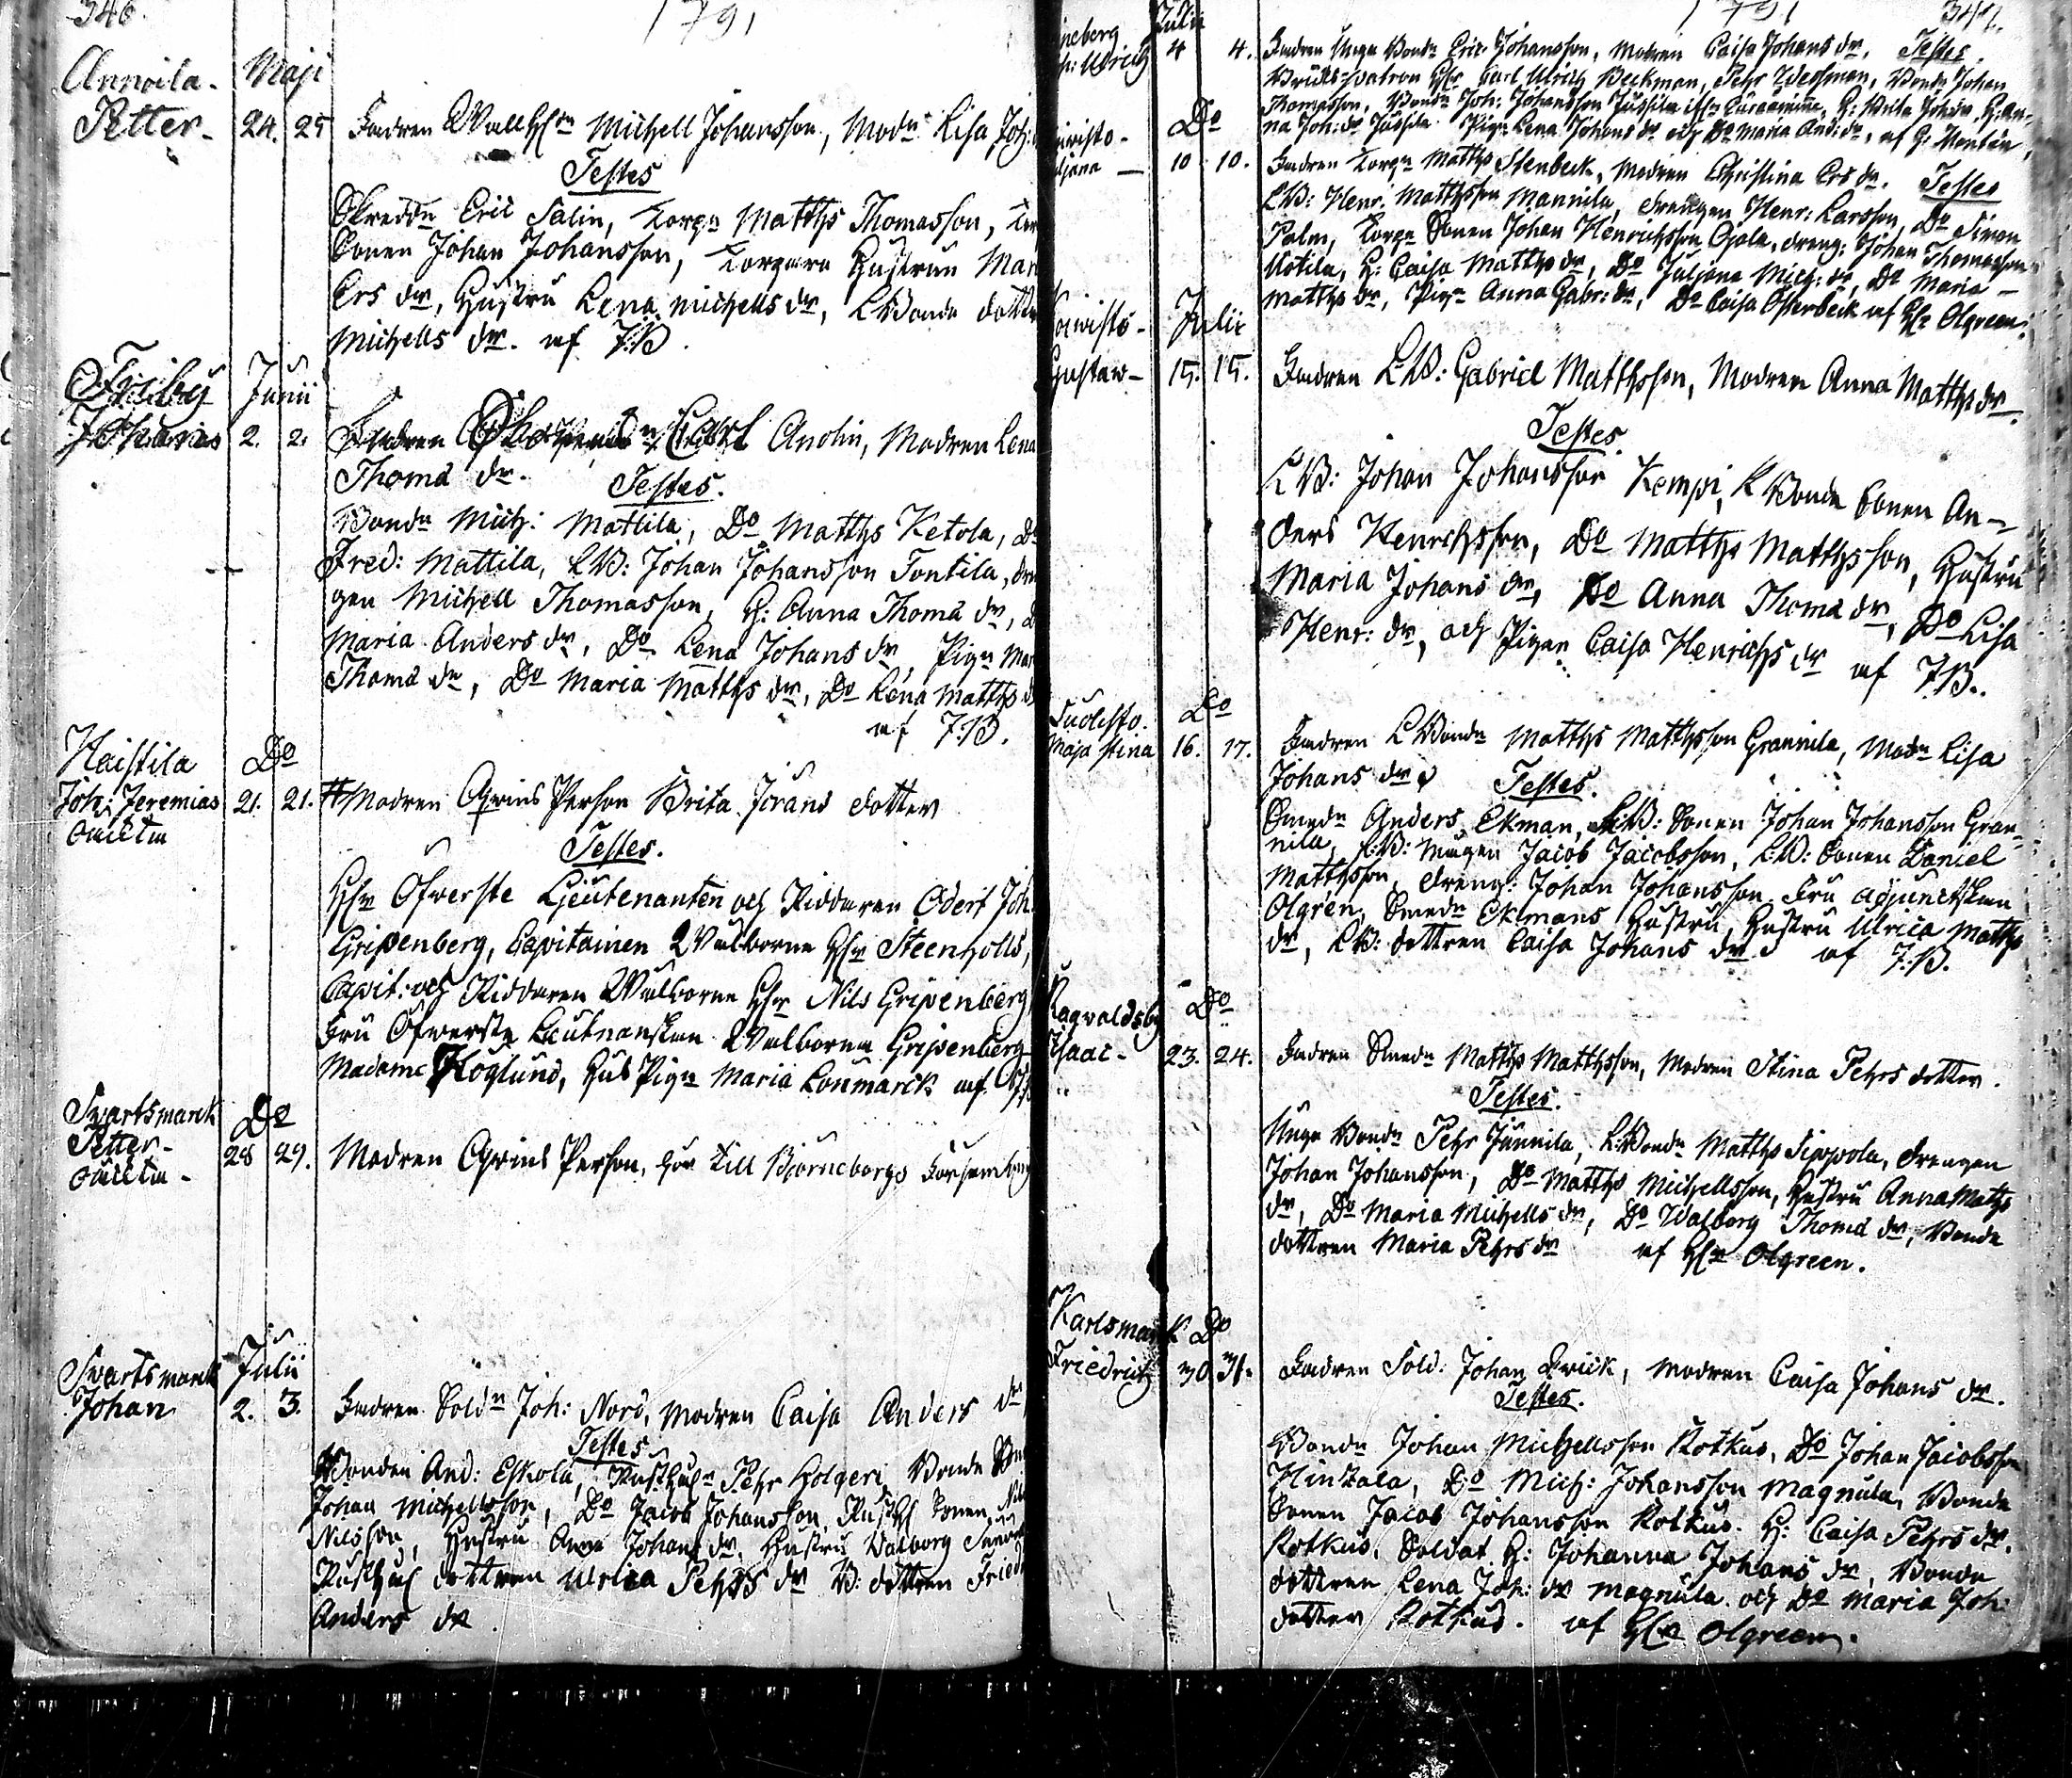 346. 1791
Annoila. Maji
Petter. 24. 25 Fadren Wallhln Michell Johansson, Modn Lisa Joh:
Testes
Skreddn Eric Salin, Torpn Matths Thomasson,
Sonen Johan Johansson, Torpare Hustrun Mar
Ers dr, Hustru Lena Michells dr, LBonde dottr
Michells dr. af 7:B.
Friby Junii
Johannes 2. 2. Fadren Carl Anolin, Modren Lena
Thoms dr. Testes.
Bondn Mich: Mattila, Do Matths Ketola, Do
Fred: Mattila, LB: Johan Johansson Tontila, dren
gen Michell Thomasson, H: Anna Thoms dr,
Maria Anders dr, Do Lena Johans dr, Pign Mar
Thoms dr, Do Maria Matths dr, Do Lena Matths
af 7:B.
Haistila Do
Joh: Jeremias 21. 21. Modren Qvins Person Brita Jörans dotter
oäckta
Testes.
Hhr Öfwerste Lieutenanten och Riddaren Odert Joh.
Gripenberg, Capitainen Wälborne Hhr Steenholts,
Capit: och Riddaren Wälborne Hhr Nils Gripenberg
Fru Öfwerste Lieutnanskan Wälborna Gripenberg
Madame Höglund, Hus Pign Maria Lönmarck af
Svartsmarck Do
Petter- 28 29. Modren Qvins Person, hör till Björneborgs Församling
oäckta-
Svartsmarck Julii
Johan 2. 3. Fadren Soldn Joh: Nord, Modren Caisa Anders dr
Testes
Bonden And: Eskola, Rusthn Pehr Holgeri, Bonde
Johan Michellsson, Do Jacob Johansson, Rusth Sonen
Nilsson, Hustru Anna Johans dr, Hustru Walborg
Rusth dottren Ulrica Pehrs dr B: dottren Friedr
Anders dr.
1791 347.
neberg Julii
h: Ulrich 4 4. Fadren Unga Bondn Eric Johansson, Modren Caisa Johans dr, Testes
Bruks Patron Hhr Carl Ulrich Beckman, Pehr Wessman, Bondn Johan
Thomasson, Bondn Joh: Johansson Jussila, H: Brita Johdr, H: An-
na Joh: dr Jussila Pign Lena Johans dr och Do Maria And: dr, af H: Montin
Do
10 10. Fadren Torpn Matths Stenbeck, Modren Christina Ers dr. Testes
LB: Henr: Matthsson Mannila, drengen Henr: Larsson, Do Simon
Palm, Torpn Sonen Johan Henrichsson Ojala, dreng: Johan Thomasson
Uotila, H: Caisa Matths dr, Do Juljana Mich: dr, Do Maria -
Matths dr, Pign Anna Gabr: dr, Do Caisa Osterbeck af Hhr Olgreen.
oivisto- Julii
Gustaw- 15. 15. Fadren LB: Gabriel Matthsson, Modren Anna Matths dr
Testes
LB: Johan Johansson Kempi, LBonde Sonen An-
ders Henrichsson, Do Matths Matthsson, Hustru
Maria Johans dr, Do Anna Thoms dr, Do Lisa
Henr: dr, och Pigan Caisa Henrichs dr af 7:B.
Suolisto. Do
Maja Stina 16. 17. Fadren LBondn Matths Matthsson Grannila, Modn Lisa
Johans dr Testes.
Smedn Anders Ekman, LB: Sonen Johan Johansson Gran-
nila, LB: mågen Jacob Jacobsson, LB: Sonen Daniel
Matthsson, dreng: Johan Johansson Fru Adjunctskan
Olgren, Smedn Ekmans Hustru, Hustru Ulrica Matths
dr, LB: dottren Caisa Johans dr af 7:B.
Ragvaldsby Do
Isaac- 23. 24. Fadren Smedn Matths Matthsson, Modren Stina Pehrs dotter.
Testes.
Unga Bondn Pehr Junnila, LBondn Matths Sippola, drengen
Johan Johansson, Do Matths Michellsson, Hustru Anna Matths
dr, Do Maria Michells dr, Do Walborg Thoms dr, Bonde
dottren Maria Pehrs dr af Hhr Olgreen.
Karlsmarck Do
Friedrich 30 31. Fadren Sold: Johan Qvick, Modren Caisa Johans dr.
Testes.
Bondn Johan Michellsson Rotkus, Do Johan Jacobsson
Hintzala, Do Mich: Johansson Magnula, Bonde
Sonen Jacob Johansson Rotkus. H: Caisa Pehrs dr.
Rotkus, Soldat H: Johanna Johans dr, Bonde
dottren Lena Joh: dr Magnula och Do Maria Joh:
dotter Rotkus. af Hhr Olgreen.